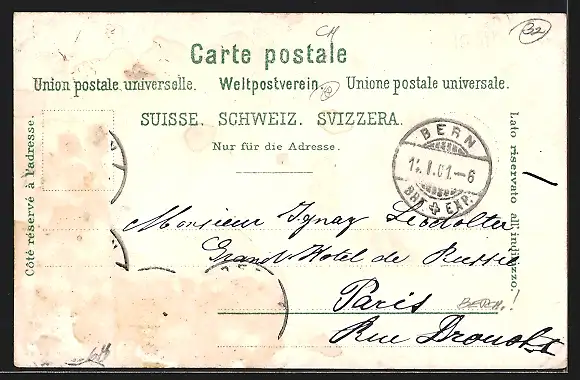 Carte postale
Union postale universelle. Weltpostverein. Unione postale universale.
SUISSE. SCHWEIZ. SVIZZERA.
Nur für die Adresse.
Côté réservé à l'adresse.
Lato riservato all'indirizzo.
BERN
BRF. EXP.
Monsieur Ignaz
Grand Hotel de Russie
Paris
BERN.
Rue Drouot